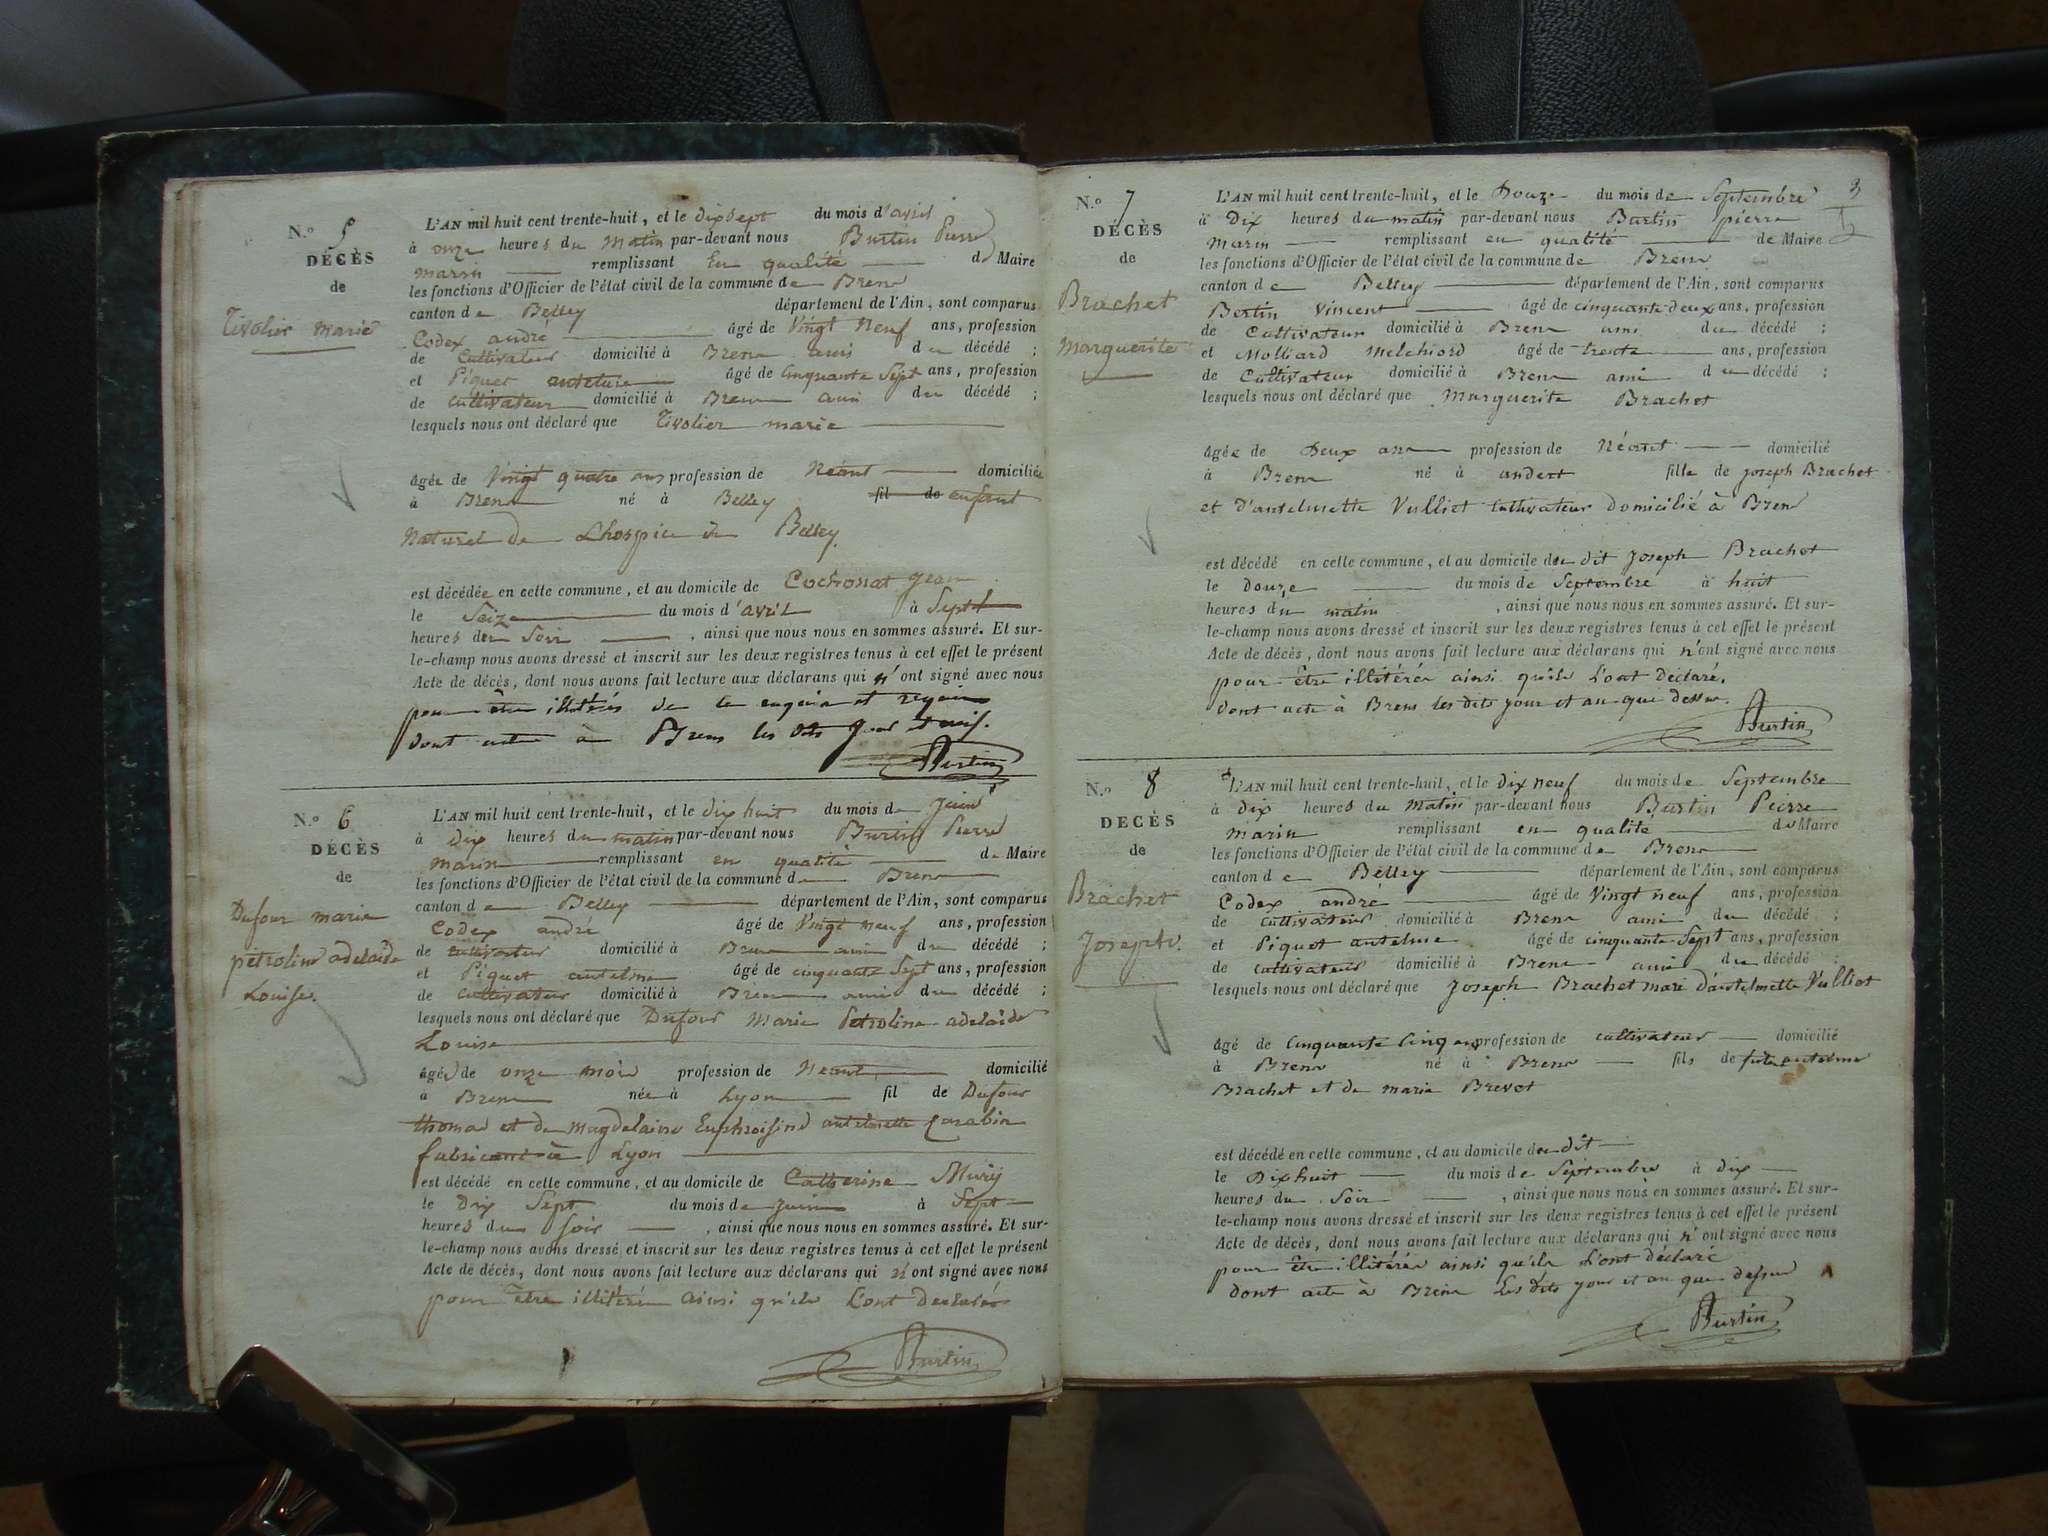 N.º 5
DÉCÈS
de
Tivolier marie
L'AN mil huit cent trente-huit, et le dix sept du mois d'avril
à onze heures du Matin par-devant nous Burtin Pierre
marin remplissant En qualité de Maire
les fonctions d'Officier de l'état civil de la commune de Brens
canton de Belley département de l'Ain, sont comparus
Codex andré âgé de Vingt Neuf ans, profession
de Cultivateur domicilié à Brens ami du décédé ;
et Piquet antelme âgé de Cinquante Sept ans, profession
de cultivateur domicilié à Brens ami du décédé ;
lesquels nous ont déclaré que Tivolier marie
âgée de Vingt quatre ans profession de Néant domiciliée
à Brens né à Belley fil de enfant
Naturel de Lhospice de Belley
est décédée en cette commune, et au domicile de Cochonat Jean
le Seize du mois d'avril à Sept
heures du Soir, ainsi que nous nous en sommes assuré. Et sur-
le-champ nous avons dressé et inscrit sur les deux registres tenus à cet effet le présent
Acte de décès, dont nous avons fait lecture aux déclarans qui n'ont signé avec nous
pour être illitérés de ce enquis et requis
dont acte à Brens les dits jour et an.
Burtin
N.º 6
DÉCÈS
de
Dufour marie
pétroline adelaïde
Louise.
L'AN mil huit cent trente-huit, et le dix huit du mois de Juin
à dix heures du matin par-devant nous Burtin Pierre
marin remplissant en qualité de Maire
les fonctions d'Officier de l'état civil de la commune de Brens
canton de Belley département de l'Ain, sont comparus
Codex andré âgé de Vingt neuf ans, profession
de cultivateur domicilié à Brens ami du décédé ;
et Piquet antelme âgé de cinquante Sept ans, profession
de cultivateur domicilié à Brens ami du décédé ;
lesquels nous ont déclaré que Dufour Marie Petroline adelaïde
Louise
âgée de onze mois profession de Néant domicilié
à Brens née à Lyon fil de Dufour
thomas et de Magdelaine Euphroisine antelmette Carabin
fabricant à Lyon
est décédé en cette commune, et au domicile de Catherine Mury
le Dix Sept du mois de juin à Sept
heures du soir, ainsi que nous nous en sommes assuré. Et sur-
le-champ nous avons dressé et inscrit sur les deux registres tenus à cet effet le présent
Acte de décès, dont nous avons fait lecture aux déclarans qui n'ont signé avec nous
pour être illitérés ainsi qu'ils L'ont déclarés
Burtin
N.º 7
DÉCÈS
de
Brachet
Marguerite
L'AN mil huit cent trente-huit, et le Douze du mois de Septembre
à Dix heures du matin par-devant nous Burtin pierre
Marin remplissant en qualité de Maire
les fonctions d'Officier de l'état civil de la commune de Brens
canton de Belley département de l'Ain, sont comparus
Bertin Vincent âgé de cinquante-deux ans, profession
de Cultivateur domicilié à Brens ami du décédé ;
et Molliard Melchiord âgé de trente ans, profession
de Cultivateur domicilié à Brens ami du décédé ;
lesquels nous ont déclaré que Marguerite Brachet
âgée de Deux ans profession de Néant domicilié
à Brens né à andert fille de joseph Brachet
et D'antelmette Vulliet Cultivateur Domicilié à Brens
est décédé en cette commune, et au domicile du dit Joseph Brachet
le douze du mois de Septembre à huit
heures du matin, ainsi que nous nous en sommes assuré. Et sur-
le-champ nous avons dressé et inscrit sur les deux registres tenus à cet effet le présent
Acte de décès, dont nous avons fait lecture aux déclarans qui n'ont signé avec nous
pour être illitérés ainsi qu'ils L'ont déclaré.
dont acte à Brens les dits jour et an que dessus.
Burtin
N.º 8
DECÈS
de
Brachet
Joseph.
L'AN mil huit cent trente-huit, et le dix neuf du mois de Septembre
à dix heures du Matin par-devant nous Burtin Pierre
marin remplissant en qualité de Maire
les fonctions d'Officier de l'état civil de la commune de Brens
canton de Belley département de l'Ain, sont comparus
Codex andré âgé de Vingt neuf ans, profession
de cultivateur domicilié à Brens ami du décédé ;
et Piquet antelme âgé de cinquante Sept ans, profession
de cultivateur domicilié à Brens ami du décédé ;
lesquels nous ont déclaré que Joseph Brachet mari d'antelmette Vulliet
âgé de Cinquante Cinq ans profession de cultivateur domicilié
à Brens né à Brens fils de antelme
Brachet et de marie Brevet
est décédé en cette commune, et au domicile du dit
le Dix huit du mois de Septembre à dix
heures du Soir, ainsi que nous nous en sommes assuré. Et sur-
le-champ nous avons dressé et inscrit sur les deux registres tenus à cet effet le présent
Acte de décès, dont nous avons fait lecture aux déclarans qui n'ont signé avec nous
pour être illitérés ainsi qu'ils L'ont déclaré
dont acte à Brens Les dits jour et an que dessus
Burtin